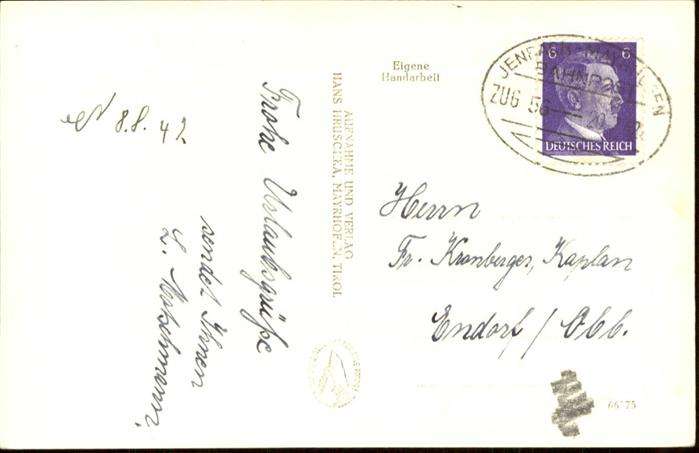 8.8.42
Frohe Urlaubsgrüße
sendet Ihnen
L.
AUFNAHME UND VERLAG
HANS HRUSCHKA, MAYRHOFEN, TIROL
Eigene
Handarbeit
6 6
DEUTSCHES REICH
ZUG 56
Herrn
Fr. Kronberger, Kaplan
Endorf / Obb.